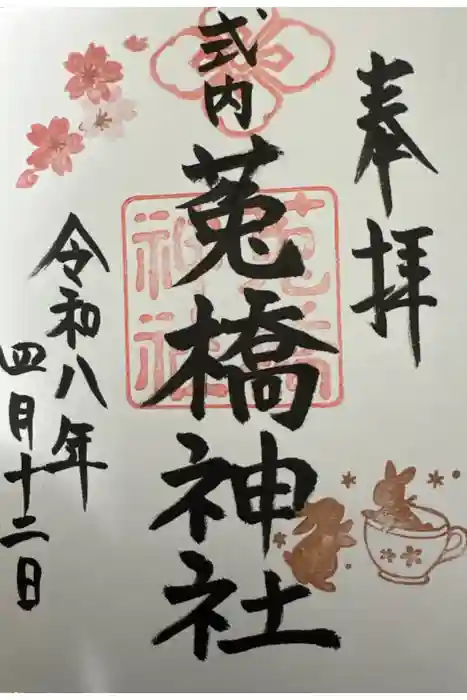 奉拝
式内
菟橋神社
菟橋
神社
令和八年
四月十二日